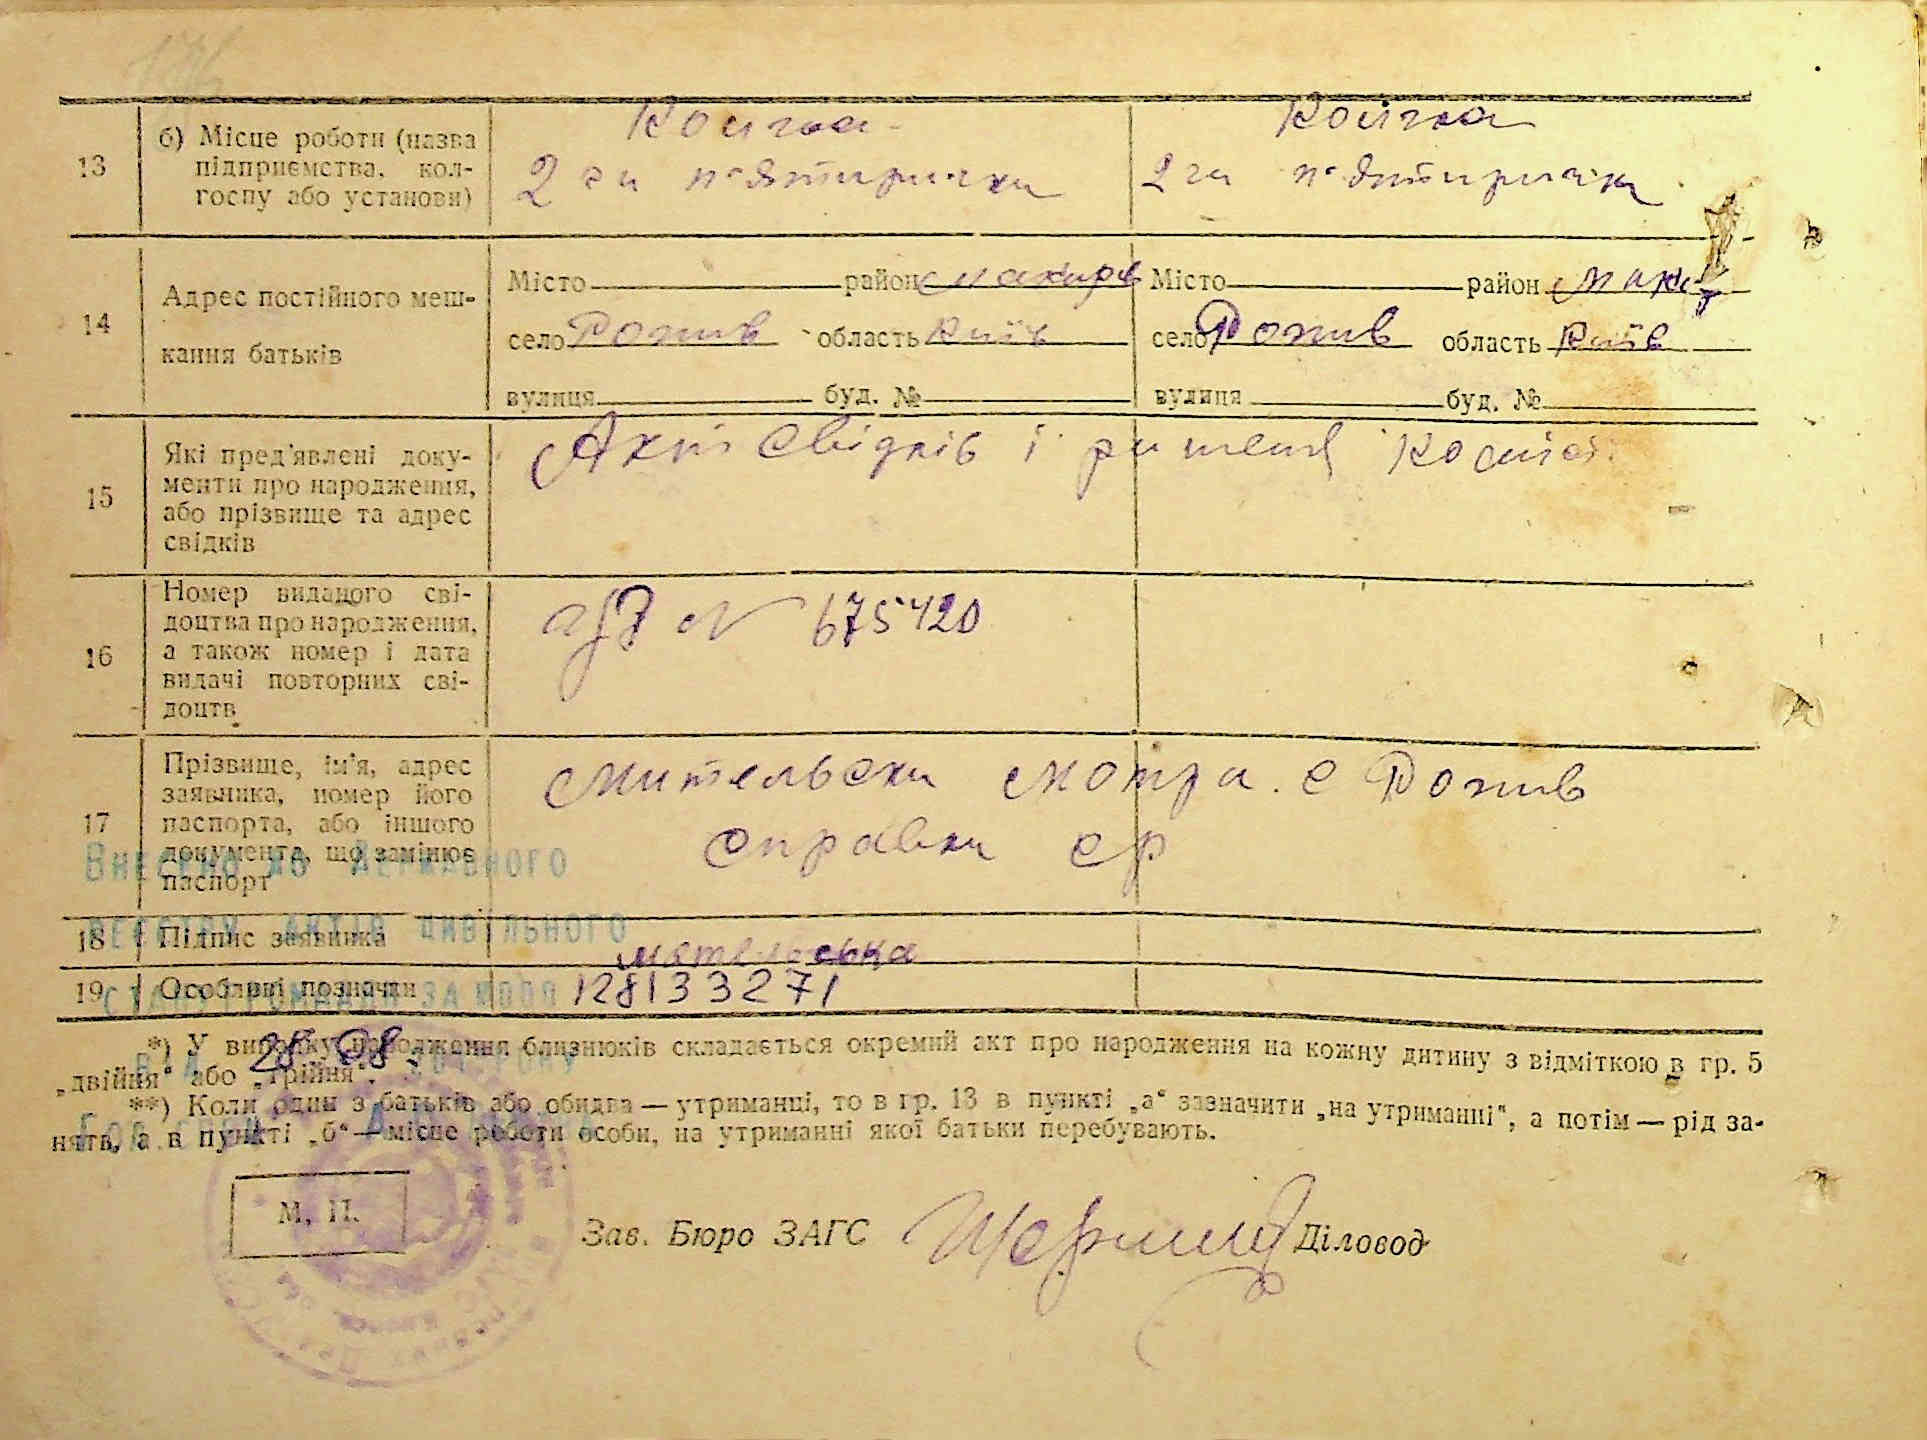 176
13 б) Місце роботи (назва підприємства, кол- госпу або установи)
2 ги п'ятирички 2 ги п'ятирички
14 Адрес постійного меш- кання батьків
Місто район макарів Місто район мака
село Ропив область Київ село Ропив область Київ
вулиця буд. № вулиця буд. №
15 Які пред'явлені доку- менти про народження, або прізвище та адрес свідків
Акт свідків і
16 Номер виданого сві- доцтва про народження, а також номер і дата видачі повторних сві- доцтв
№ 675420
17 Прізвище, ім'я, адрес заявника, номер його паспорта, або іншого документа, що замінює паспорт
Мительски Мотра. с Ропив
справки ср
18 Підпис заявника
мательська
19 Особливі позначки 128133271
Внесено до Державного
реєстру актів цивільного
стану громадян за №
28 08
*) У випадку народження близнюків складається окремий акт про народження на кожну дитину з відміткою в гр. 5
„двійня" або „трійня".
**) Коли один з батьків або обидва — утриманці, то в гр. 13 в пункті „а" зазначити „на утриманні", а потім — рід за-
нять, а в пункті „б" — місце роботи особи, на утриманні якої батьки перебувають.
М. П.
Зав. Бюро ЗАГС Діловод